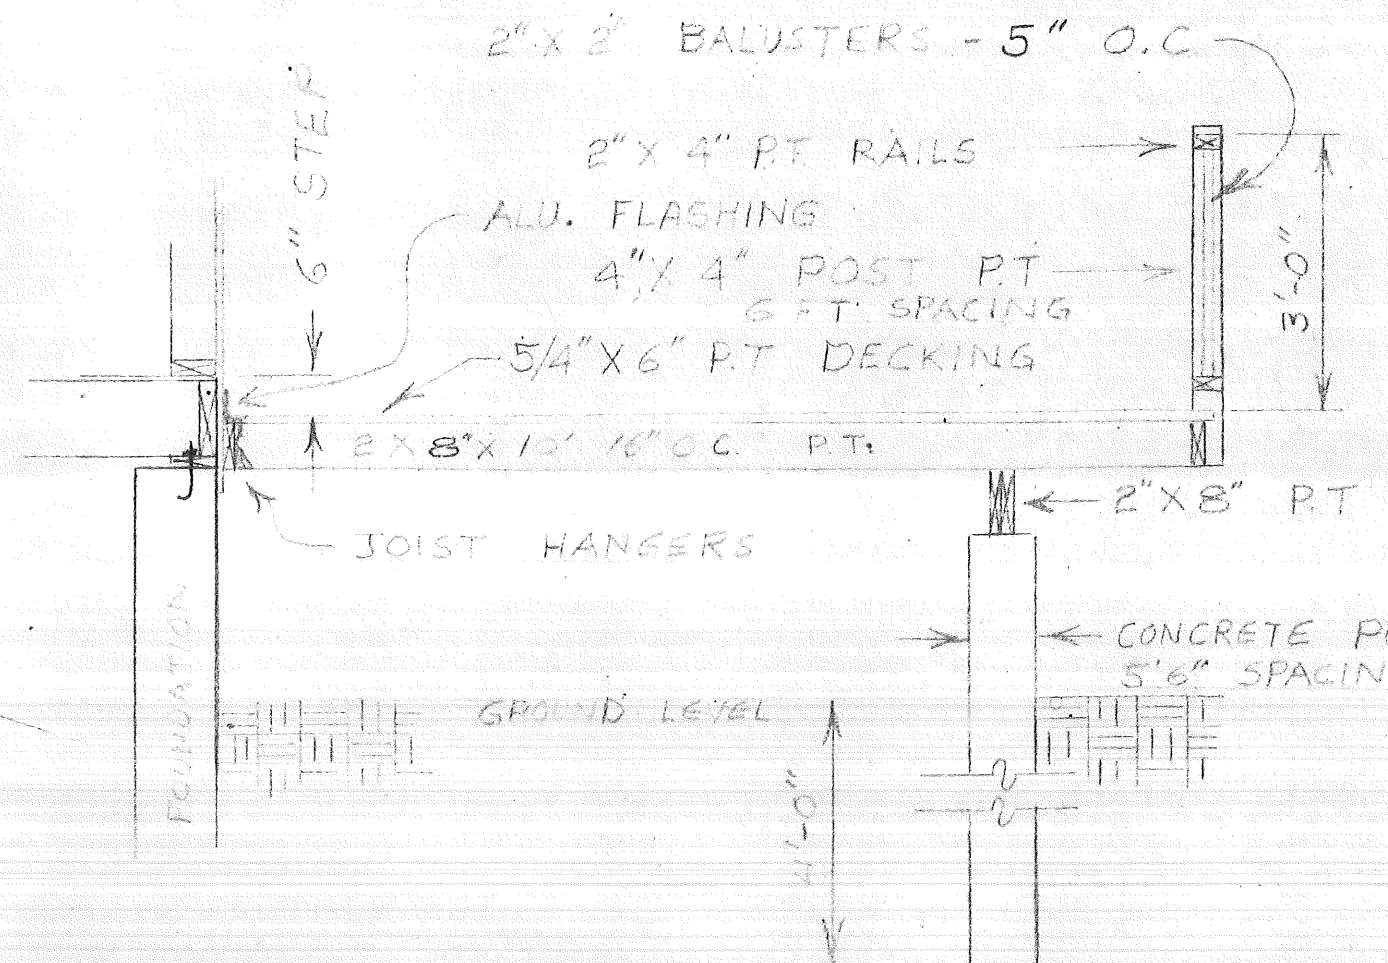 2" X 2" BALUSTERS - 5" O.C.
6" STEP
2" X 4" P.T. RAILS
ALU. FLASHING
4" X 4" POST P.T
6 FT. SPACING
3'-0"
5/4" X 6" P.T DECKING
2 X 8" X 10' 16" O.C. P.T.
2" X 8" P.T
JOIST HANGERS
FOUNDATION
CONCRETE
5'6" SPACIN
GROUND LEVEL
4'-0"